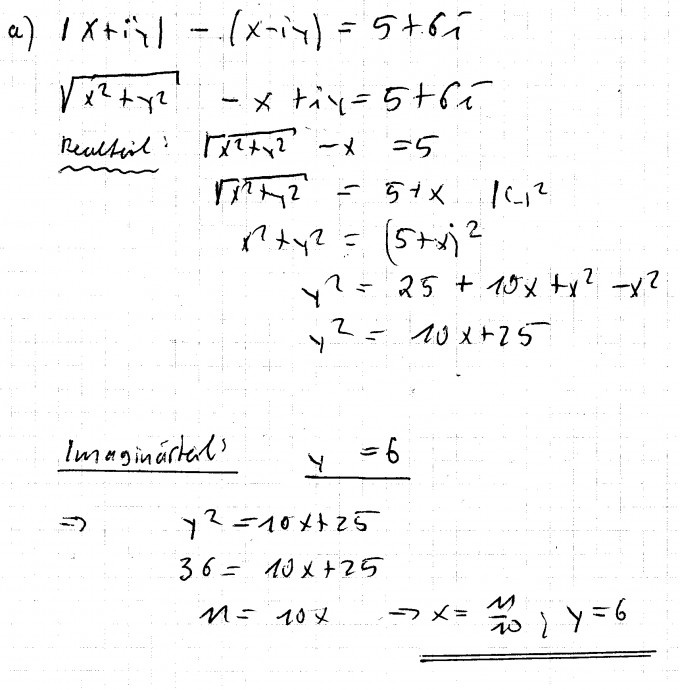 a) |x+iy| - (x-iy) = 5+6i
√(x²+y²) - x + iy = 5+6i
Realteil: √(x²+y²) - x = 5
√(x²+y²) = 5+x |(-)²
x²+y² = (5+x)²
y² = 25 + 10x + x² - x²
y² = 10x+25
Imaginärteil: y = 6
⇒ y² = 10x+25
36 = 10x+25
11 = 10x ⇒ x = 11/10 ; y = 6